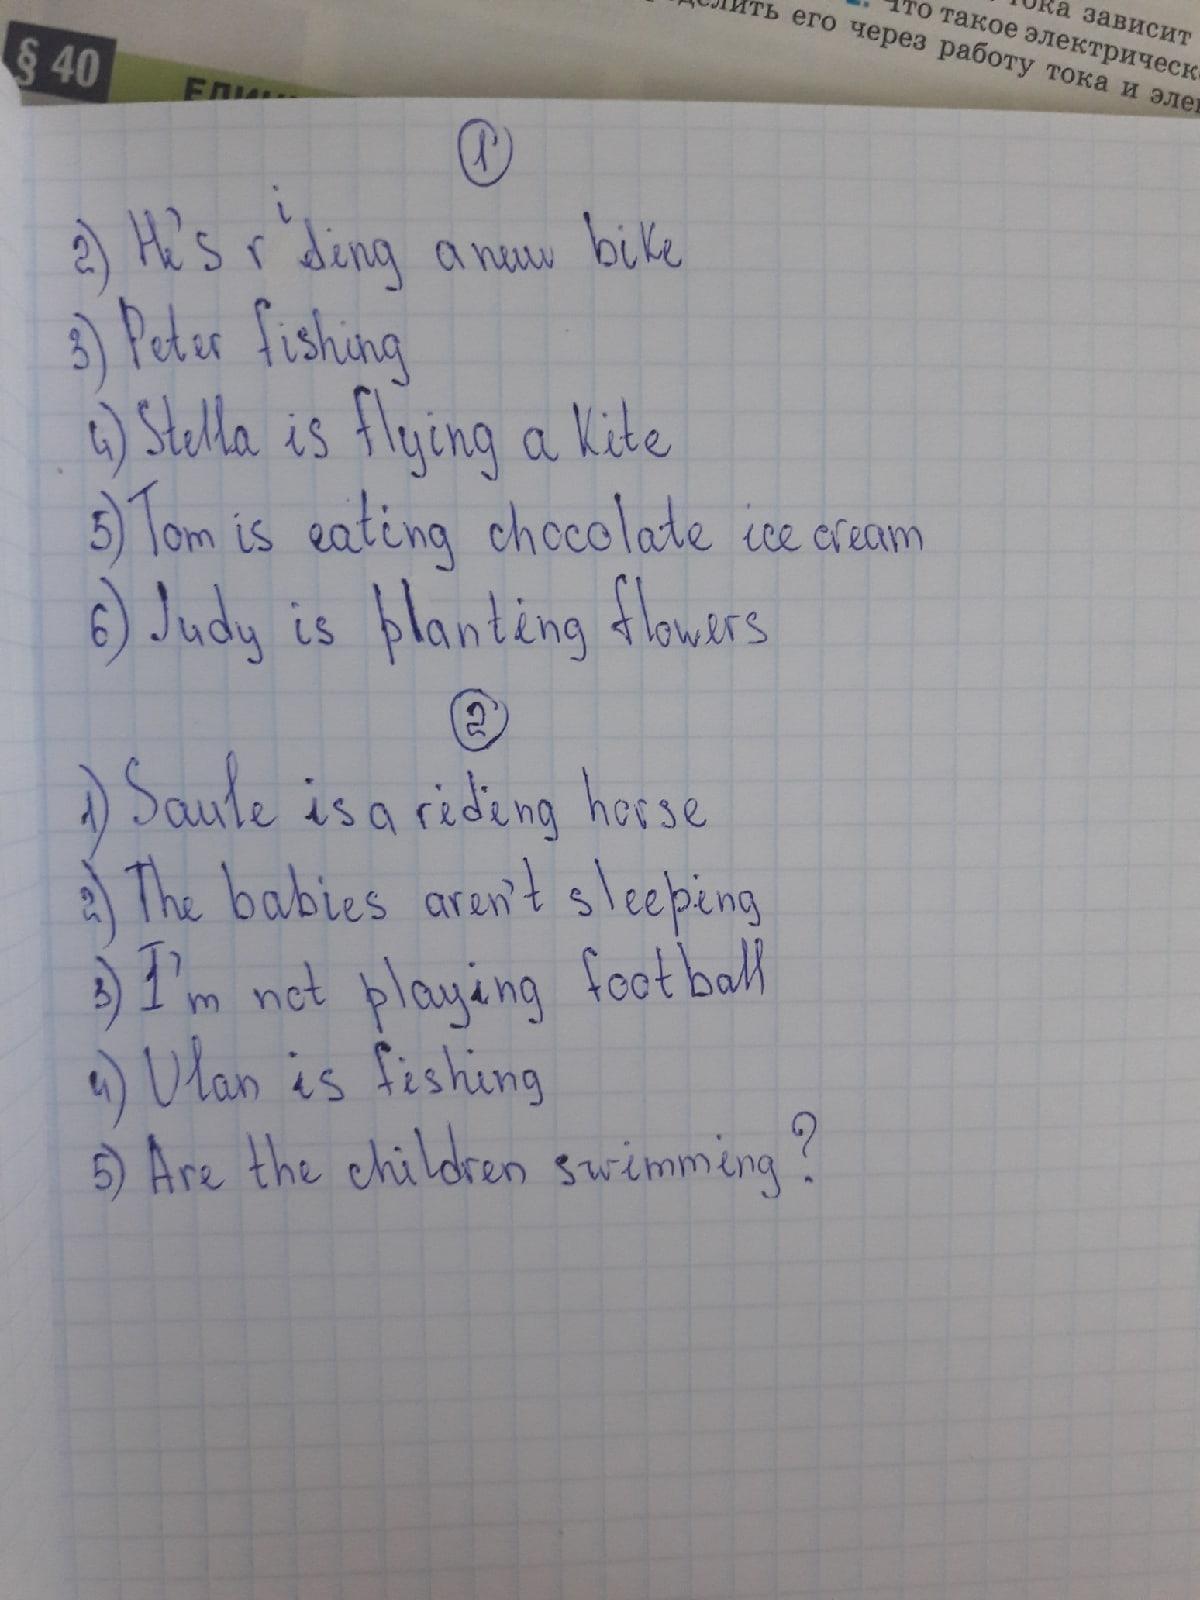 тока зависит
2. Что такое электрическ
делить его через работу тока и элек
§ 40
ЕДИН
1
2) He's riding a new bike
3) Peter fishing
4) Stella is flying a kite
5) Tom is eating chocolate ice cream
6) Judy is planting flowers
2
1) Saule is a riding horse
2) The babies aren't sleeping
3) I'm not playing football
4) Ulan is fishing
5) Are the children swimming?